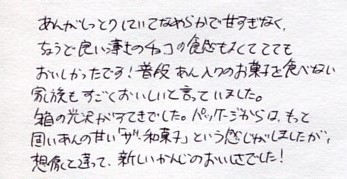 あんがしっとりしていてなめらかで甘すぎなく、
ちょうど良い薄さのチョコの食感もよくてとても
おいしかったです！普段あん入りのお菓子を食べない
家族もすごくおいしいと言っていました。
箱の光沢がすてきでした。パッケージからは、もって
固いあんの甘い「ザ・和菓子」という感じがしましたが、
想像と違って、新しいかんじのおいしさでした！